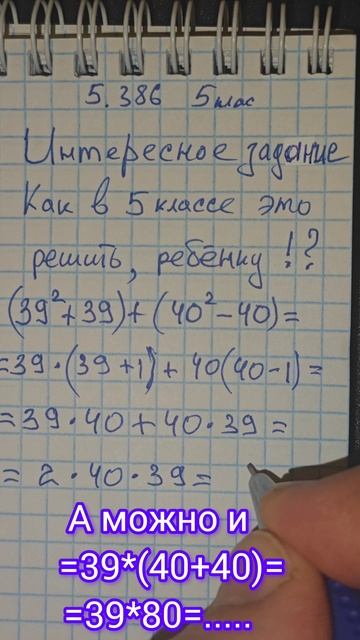 5.386 5 клас
Интересное задание
Как в 5 классе это
решить, ребёнку !?
(39²+39)+(40²-40)=
=39·(39+1)+40(40-1)=
=39·40+40·39=
=2·40·39=
А можно и
=39*(40+40)=
=39*80=.....